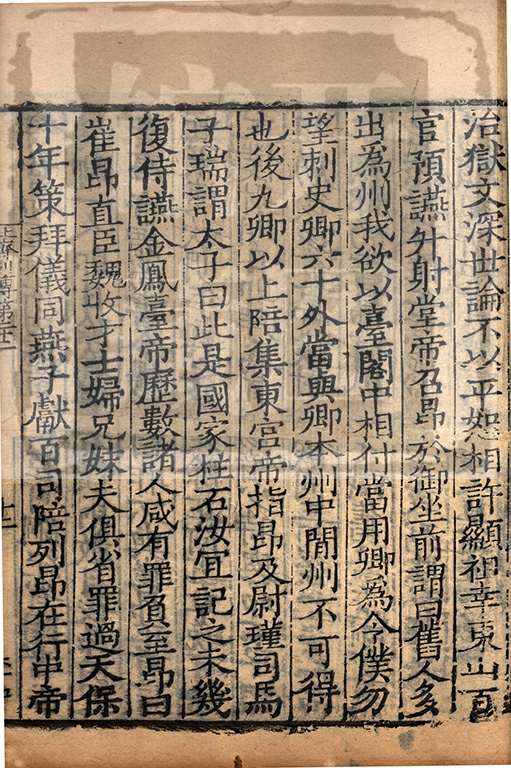 治獄文深世論不以平恕相許顯祖幸東山百
官預讌升射堂帝召昂於御坐前謂曰舊人多
出爲州我欲以臺閣中相付當用卿爲令僕勿
望刺史卿六十外當與卿本州中閒州不可得
也後九卿以上陪集東宫帝指昂及尉瑾司馬
子瑞謂太子曰此是國家柱石汝宜記之未幾
復侍讌金鳳臺帝歷數諸人咸有罪負至昂曰
崔昂直臣魏收才士婦兄妹夫俱省罪過天保
十年策拜儀同燕子獻百司陪列昂在行中帝